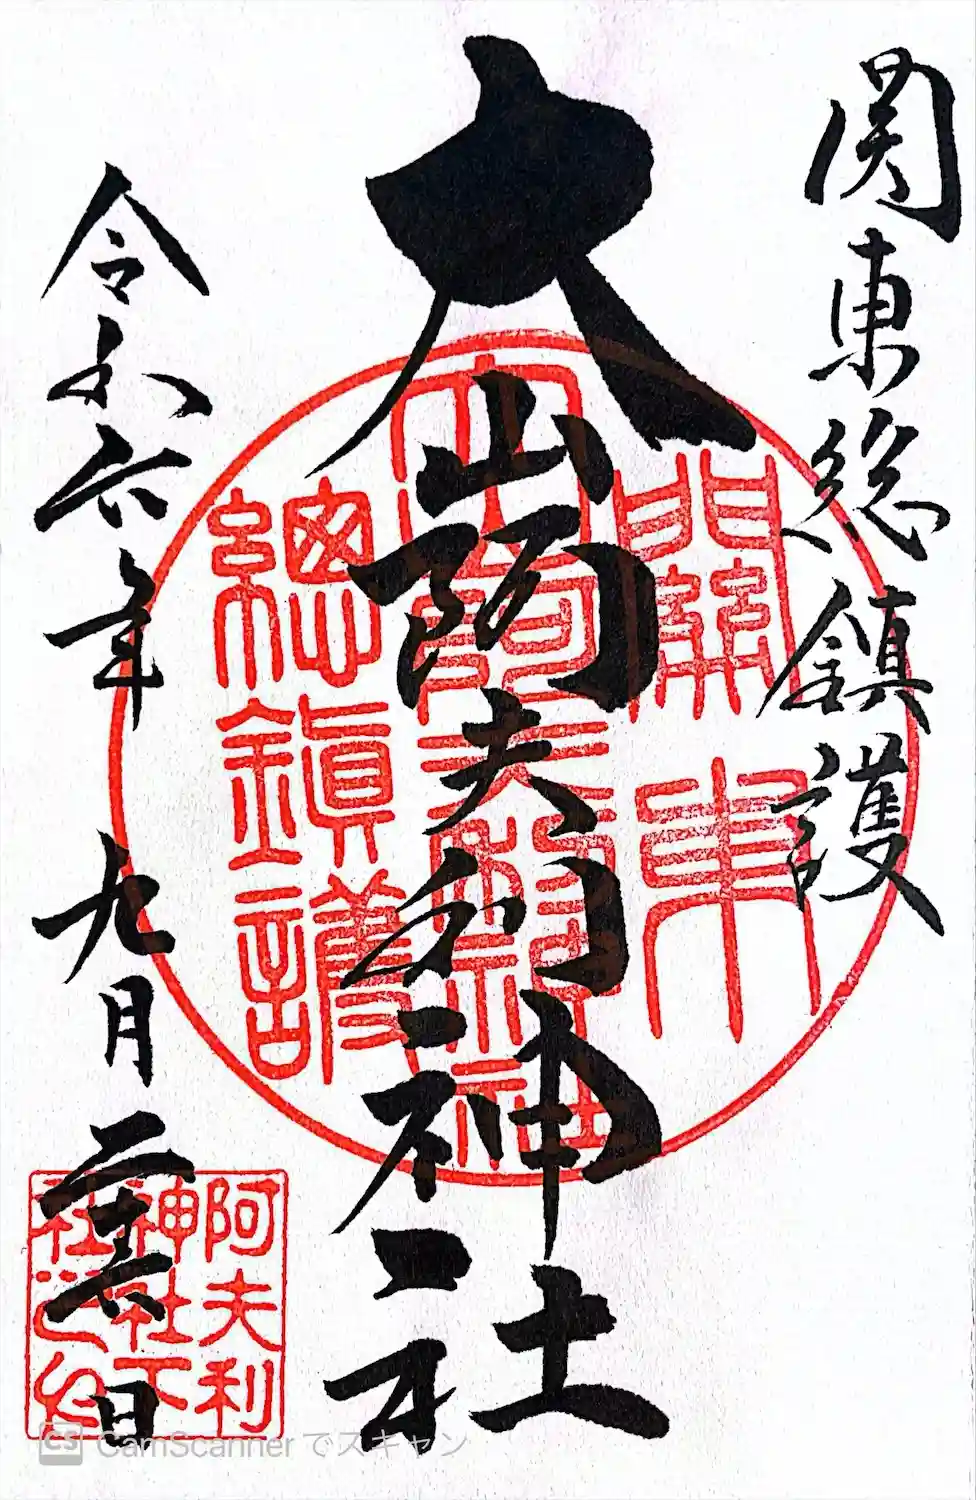 関東総鎮護
大山阿夫利神社
令和六年九月二十六日
關東
大山阿夫利神社
總鎮護
阿夫利
神社下
社之印
CamScanner でスキャン